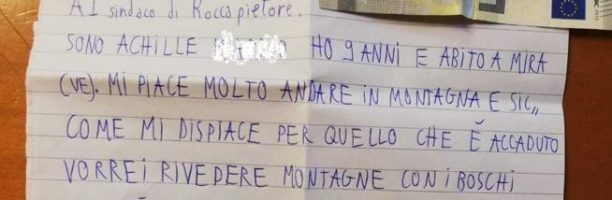 Al sindaco di Roccapietore.
SONO ACHILLE HO 9 ANNI E ABITO A MIRA
(VE). MI PIACE MOLTO ANDARE IN MONTAGNA E SIC„
COME MI DISPIACE PER QUELLO CHE È ACCADUTO
VORREI RIVEDERE MONTAGNE CON I BOSCHI